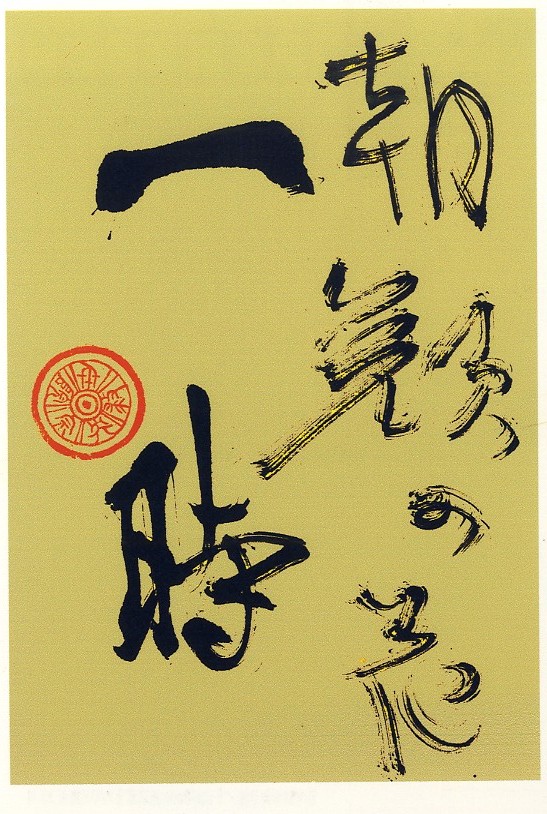 朝顔の花
一時